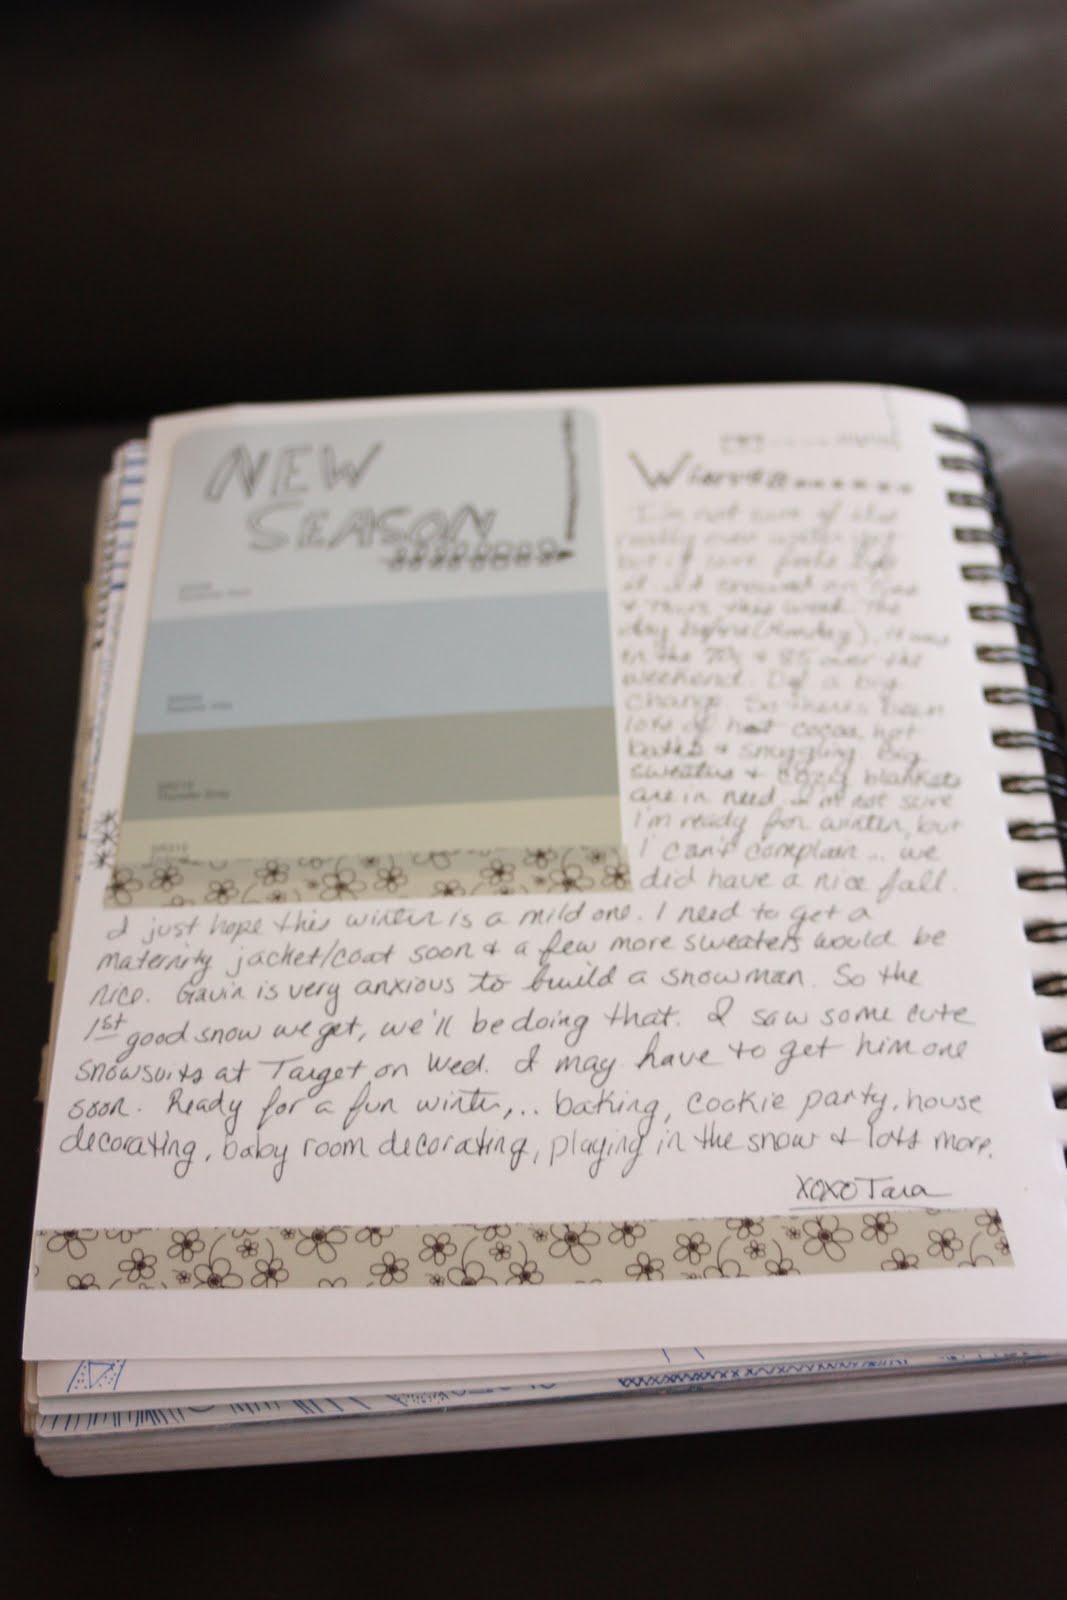 NEW
SEASON
Winter......
I'm not sure if it's
really even winter yet
but it sure feels like
it. It snowed on
& Thurs this week. The
day before (Monday), it was
in the 70s & 85 over the
weekend. Def a big
change. So there's been
lots of hot cocoa, hot
baths & snuggling. Big
sweaters & cozy blankets
are in need. I'm not sure
I'm ready for winter, but
I can't complain... we
did have a nice fall.
I just hope this winter is a mild one. I need to get a
maternity jacket/coat soon & a few more sweaters would be
nice. Gavin is very anxious to build a snowman. So the
1st good snow we get, we'll be doing that. I saw some cute
snowsuits at Target on Wed. I may have to get him one
soon. Ready for a fun winter,... baking, cookie party, house
decorating, baby room decorating, playing in the snow & lots more.
XOXO Tara